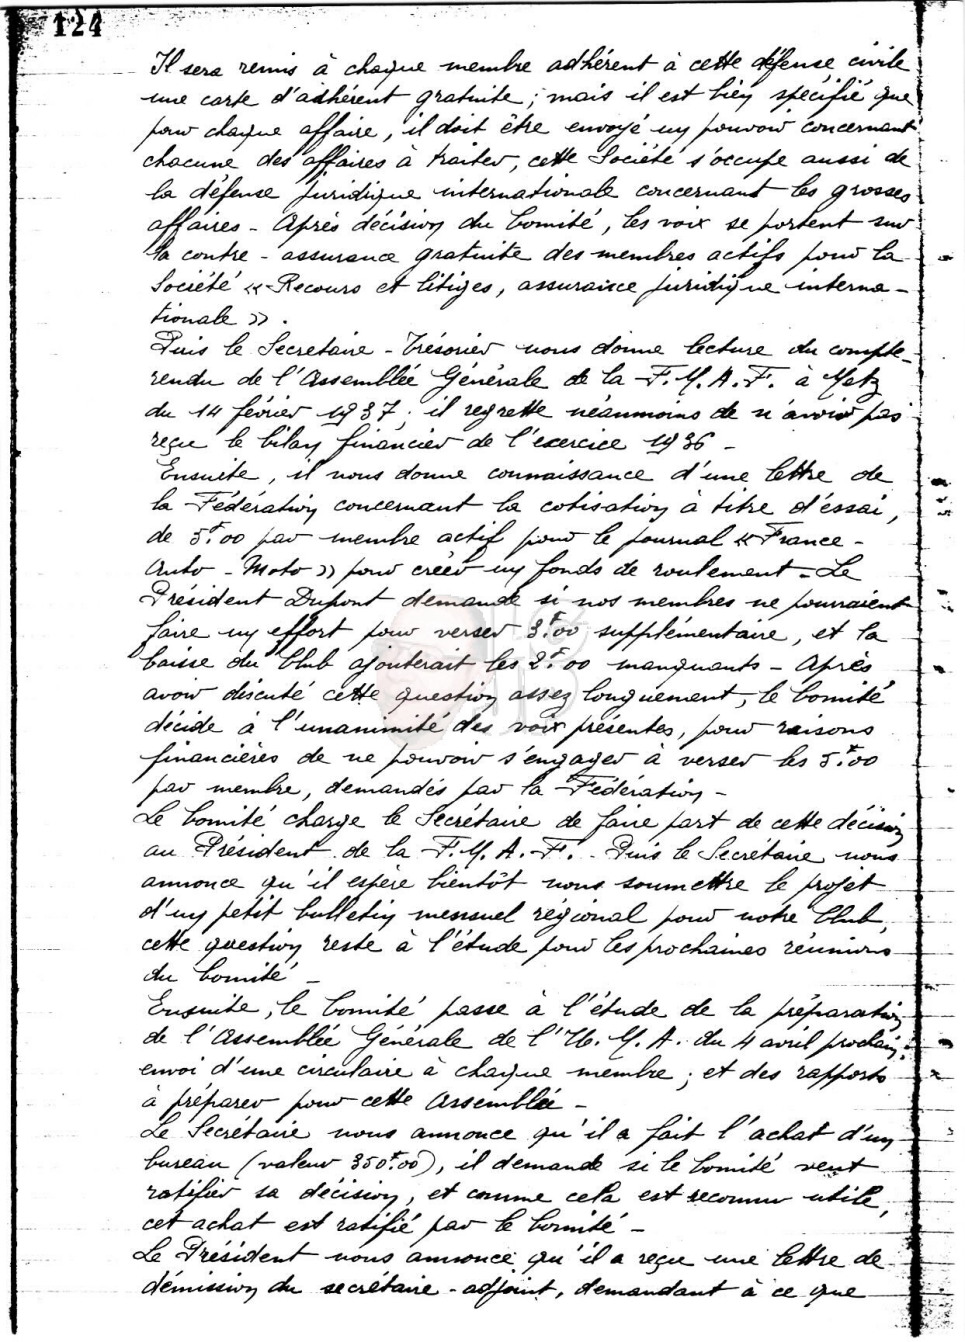 124
Il sera remis à chaque membre adhérent à cette défense civile
une carte d'adhérent gratuite ; mais il est bien spécifié que
pour chaque affaire, il doit être envoyé un pouvoir concernant
chacune des affaires à traiter, cette Société s'occupe aussi de
la défense juridique internationale concernant les grosses
affaires - Après décision du Comité, les voix se portent sur
la contre - assurance gratuite des membres actifs pour la
Société « Recours et litiges, assurance juridique interna-
tionale ».
Puis le Secrétaire - Trésorier nous donne lecture du compte-
rendu de l'Assemblée Générale de la F.M.A.F. à Metz
du 14 février 1937, il regrette néanmoins de n'avoir pas
reçu le bilan financier de l'exercice 1936 -
Ensuite, il nous donne connaissance d'une lettre de
la Fédération concernant la cotisation à titre d'éssai,
de 5f.00 par membre actif pour le journal « France -
Auto - Moto » pour créér un fonds de roulement - Le
Président Dupont demande si nos membres ne pourraient
faire un effort pour verser 3f.00 supplémentaire, et la
caisse du Club ajouterait les 2f.00 manquants - Après
avoir discuté cette question assez longuement, le Comité
décide à l'unanimité des voix présentes, pour raisons
financières de ne pouvoir s'engager à verser les 5f.00
par membre, demandés par la Fédération -
Le Comité charge le Secrétaire de faire part de cette décision
au Président de la F.M.A.F. - Puis le Secrétaire nous
annonce qu'il espère bientôt nous soumettre le projet
d'un petit bulletin mensuel régional pour notre Club,
cette question reste à l'étude pour les prochaines réunions
du Comité -
Ensuite, le Comité passe à l'étude de la préparation
de l'Assemblée Générale de l'U.M.A. du 4 avril prochain :
envoi d'une circulaire à chaque membre ; et des rapports
à préparer pour cette Assemblée -
Le Secrétaire nous annonce qu'il a fait l'achat d'un
bureau (valeur 350f.00), il demande si le Comité veut
ratifier sa décision, et comme cela est reconnu utile,
cet achat est ratifié par le Comité -
Le Président nous annonce qu'il a reçu une lettre de
démission du secrétaire - adjoint, demandant à ce que